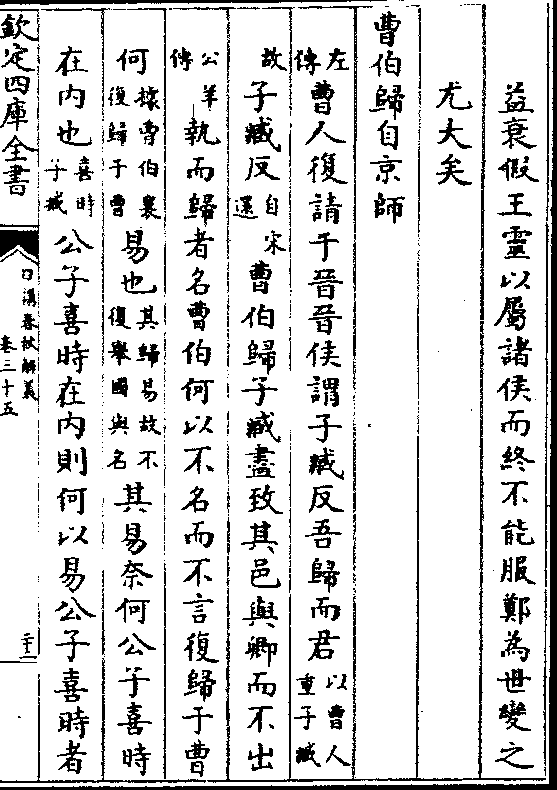 益衰假王靈以屬諸侯而終不能服鄭為世變之
尤大矣
曹伯歸自京師
左傳曹人復請于晉晉侯謂子臧反吾歸而君以曹人重子臧
故子臧反自宋還曹伯歸子臧盡致其邑與卿而不出
公羊傳執而歸者名曹伯何以不名而不言復歸于曹
何據曹伯襄復歸于曹易也其歸易故不復舉國與名其易奈何公子喜時
在内也喜時子臧公子喜時在内則何以易公子喜時者
欽定四庫全書
日講春秋解義
卷三十五
二十二